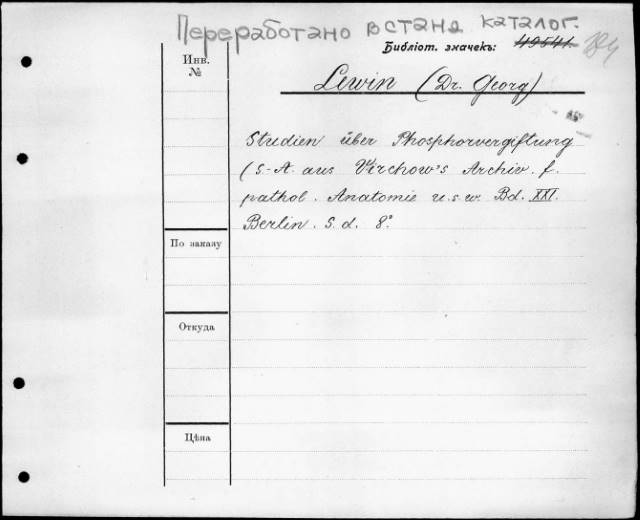 Переработано в станд. каталог.
Библіот. значекъ: 49541.
Инв.
№
Lewin (Dr. Georg)
Studien über Phosphorvergiftung
(S.-A. aus Virchow's Archiv. f.
pathol. Anatomie u. s. w. Bd. XXI.
Berlin. S. d. 8°
По заказу
Откуда
Цѣна